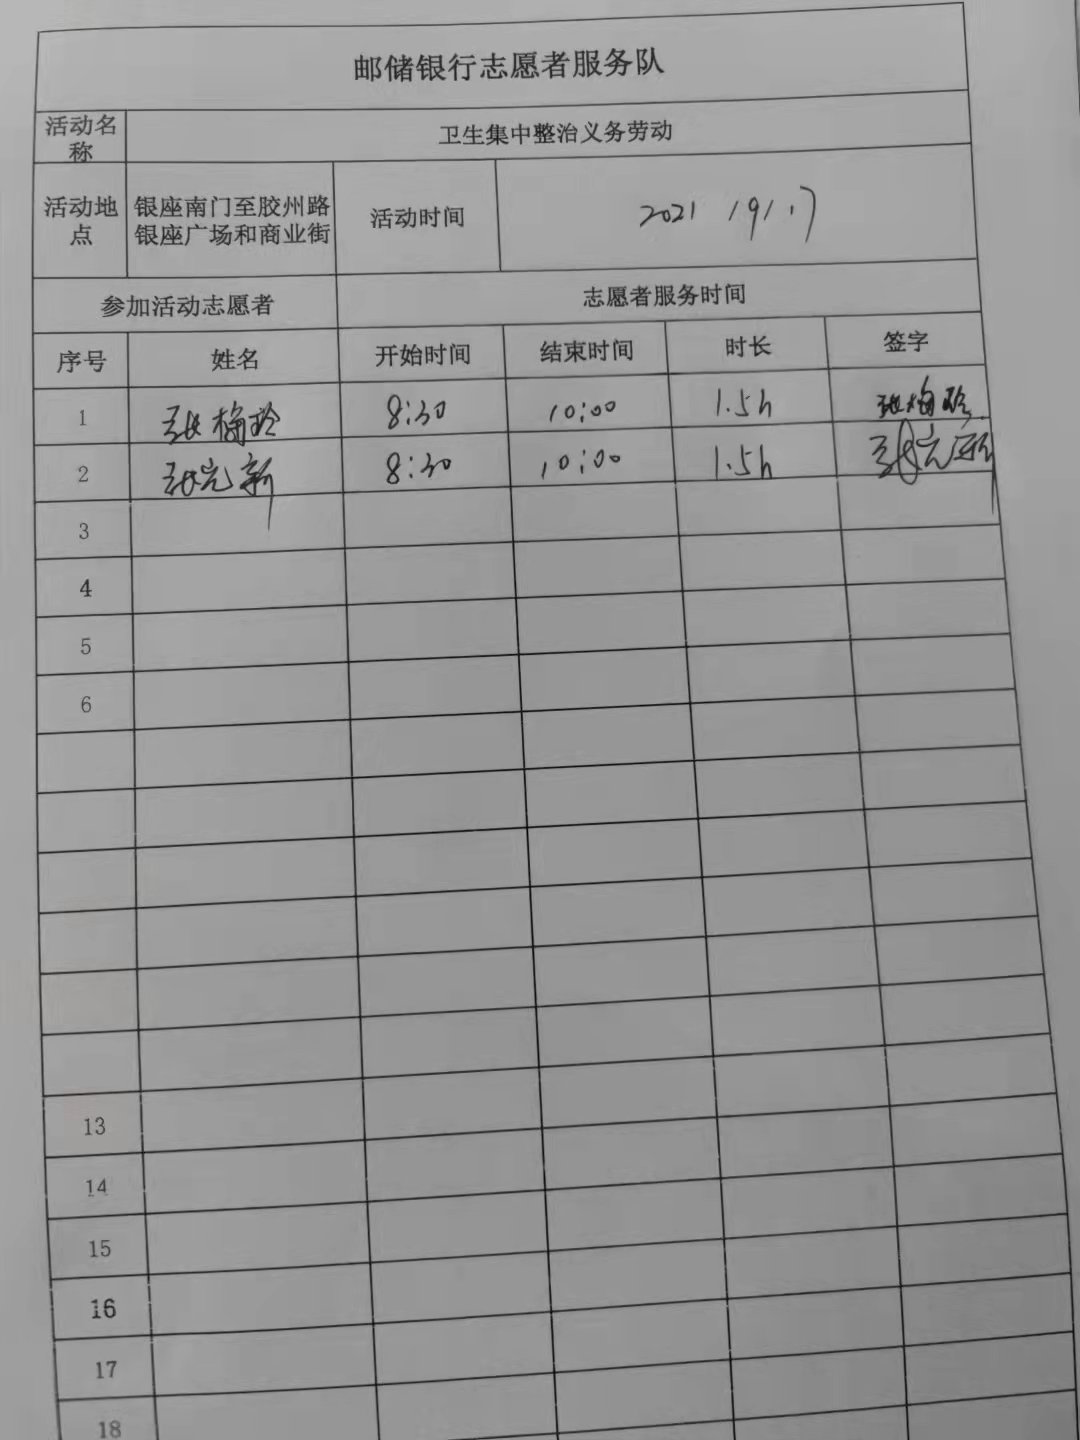 邮储银行志愿者服务队
活动名称 卫生集中整治义务劳动
活动地点 银座南门至胶州路银座广场和商业街 活动时间 2021
参加活动志愿者 志愿者服务时间
序号 姓名 开始时间 结束时间 时长 签字
1 张梅玲 8:30 10:00 1.5h 张梅玲
2 张元新 8:30 10:00 1.5h 张元新
3
4
5
6
13
14
15
16
17
18